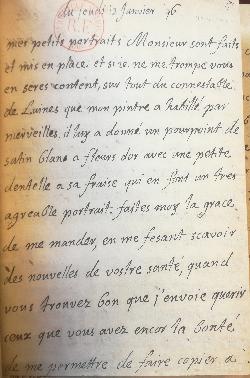 du jeudi 12 Janvier 76
mes petits portraits Monsieur sont faits
et mis en place. et si je ne me trompe vous
en seres content, sur tout du connestable
de Luines que mon pintre a habillé par
merveilles. il luy a donné un pourpoint de
satin blanc a fleurs d'or avec une petite
dentelle a sa fraise qui en font un tres
agreable portrait. faites moy la grace
de me mander, en me fesant scavoir
des nouvelles de vostre santé, quand
vous trouvez bon que j'envoie querir
ceux que vous avez encor la bonté
de me permettre de faire copier. a